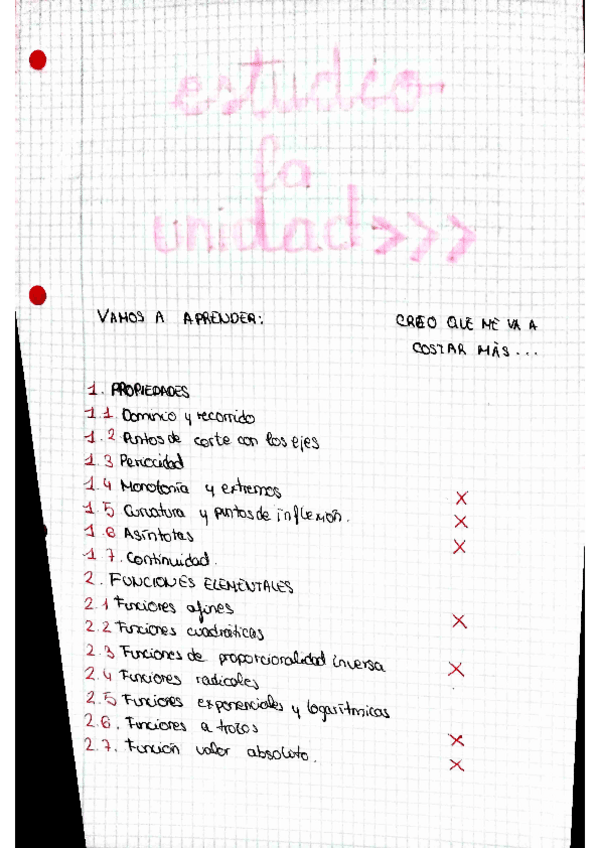 estudio
la
unidad>>>
VAMOS A APRENDER:
CREO QUE ME VA A
COSTAR MÀS...
1. PROPIEDADES
1.1 Dominio y recorrido
1.2 Puntos de corte con los ejes
1.3 Periocidad
1.4 Monotonía y extremos X
1.5 Curvatura y puntos de inflexión. X
1.6 Asíntotas X
1.7. Continuidad.
2. FUNCIONES ELEMENTALES
2.1 Funciones afines
2.2 Funciones cuadráticas X
2.3 Funciones de proporcionalidad inversa
2.4 Funciones radicales X
2.5 Funciones exponenciales y logarítmicas
2.6. Funciones a trozos X
2.7. Función valor absoluto. X